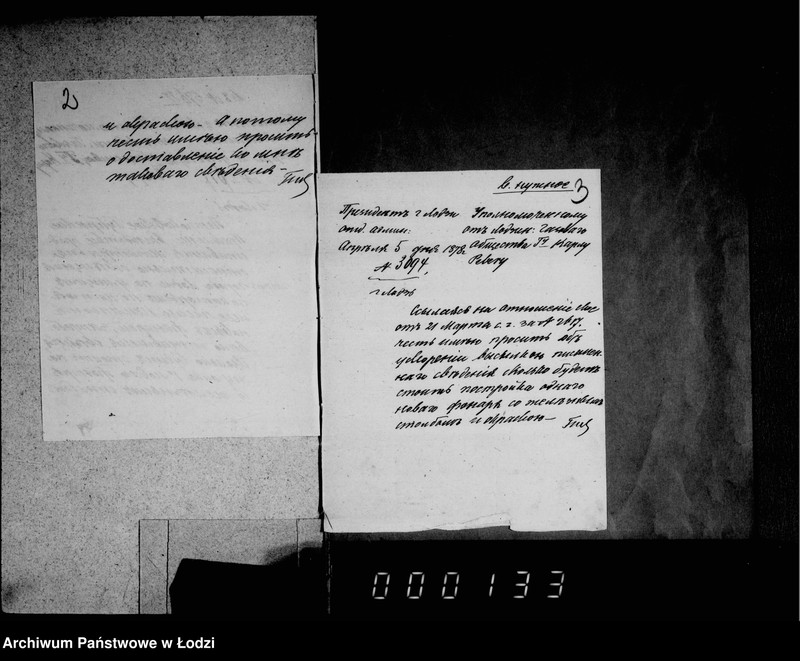 2
и окраскою — а потому
честь имею просить
о доставленіе ко мнѣ
таковаго свѣденія —
в. нужное 3
Президентъ г Лодзи
отд. админ:
Апрѣля 5 дня 1878г
№ 3094,
г Лодзь
Уполномоченному
отъ Лодзин: Газоваго
общества Гну Карлу
Ссылаясь на отношеніе свое
отъ 21 Марта с. г. за № 2617.
честь имѣю просить объ
ускореніи высылкою письмен-
наго свѣденія сколько будетъ
стоить постройка одного
новаго фонаря со желѣзнымъ
столбомъ и окраскою —
000133
Archiwum Państwowe w Łodzi